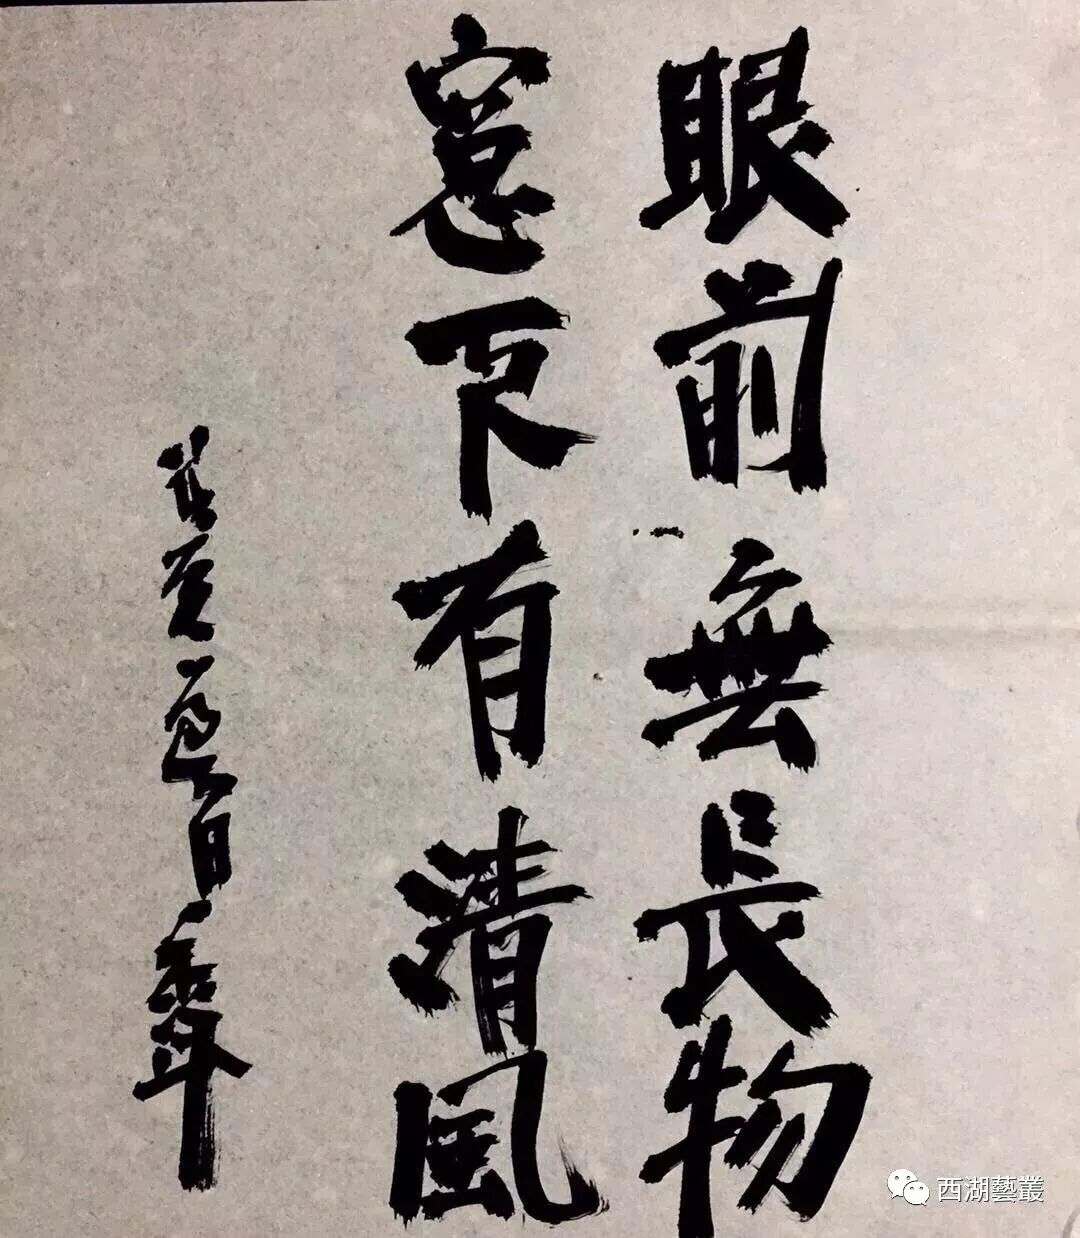 眼前無長物
窓下有清風
西湖藝叢